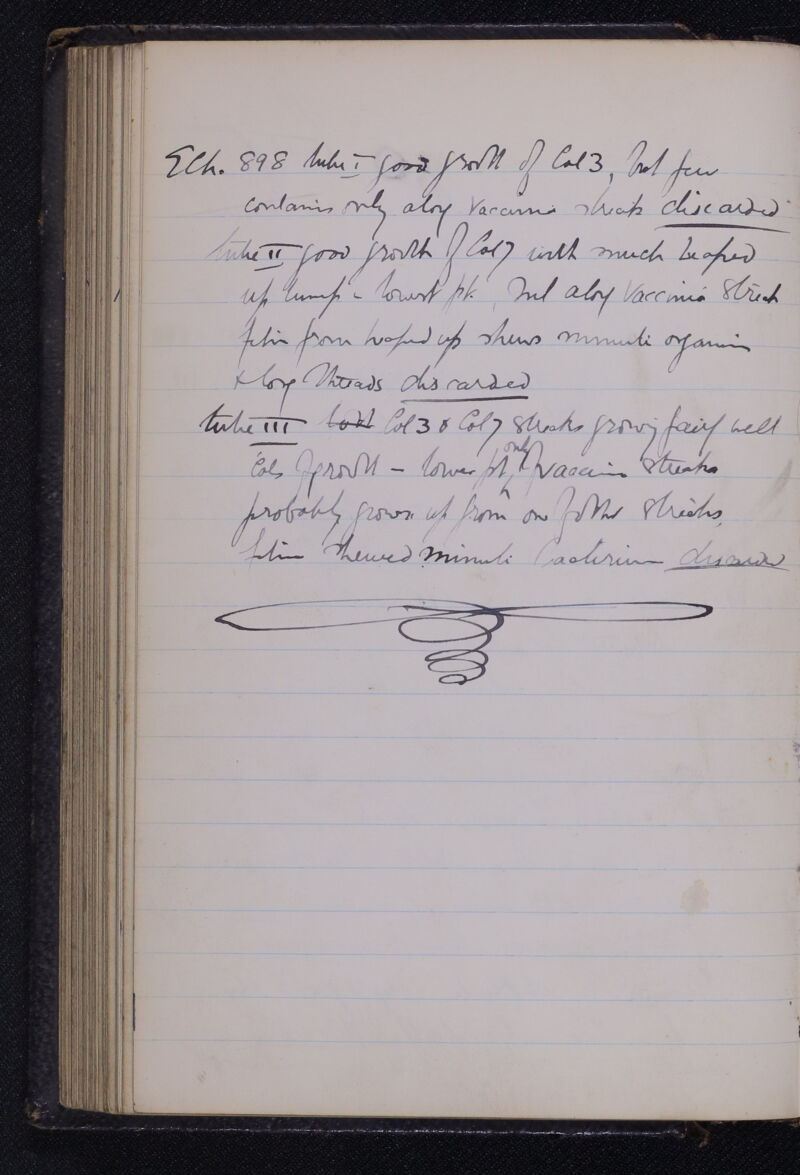 Ech. 898 tube I good growth of Col 3, but few
contams only along Vaccinia streak discarded
tube II good growth of Col 7 with much heaped
up lump - lowest pt. but along Vaccinia Streak
film from heaped up shews minute organism
& long threads discarded
tube III both Col 3 & Col 7 streaks growing fairly well
Cols of growth - lower pt only of vaccinia streaks
probably grown up from one of other streaks,
film shewed minute bacterium discarded